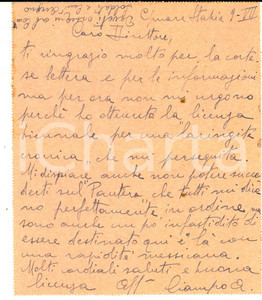 C/mare Stabia 9-III
Caro Direttore,
ti ringrazio molto per la corte-
se lettera e per le informazioni
ma per ora non mi urgono
perchè ho ottenuto la licenza
biennale per una laringite
cronica che mi perseguita.
Mi dispiace anche non poter succe-
derti sul Pantera che tutti mi dico
no perfettamente in ordine, ma
sono anche un po infastidito di
essere destinato qui e là con
una rapidità messicana.
Molti cordiali saluti e buona
licenza aff. Ciampo